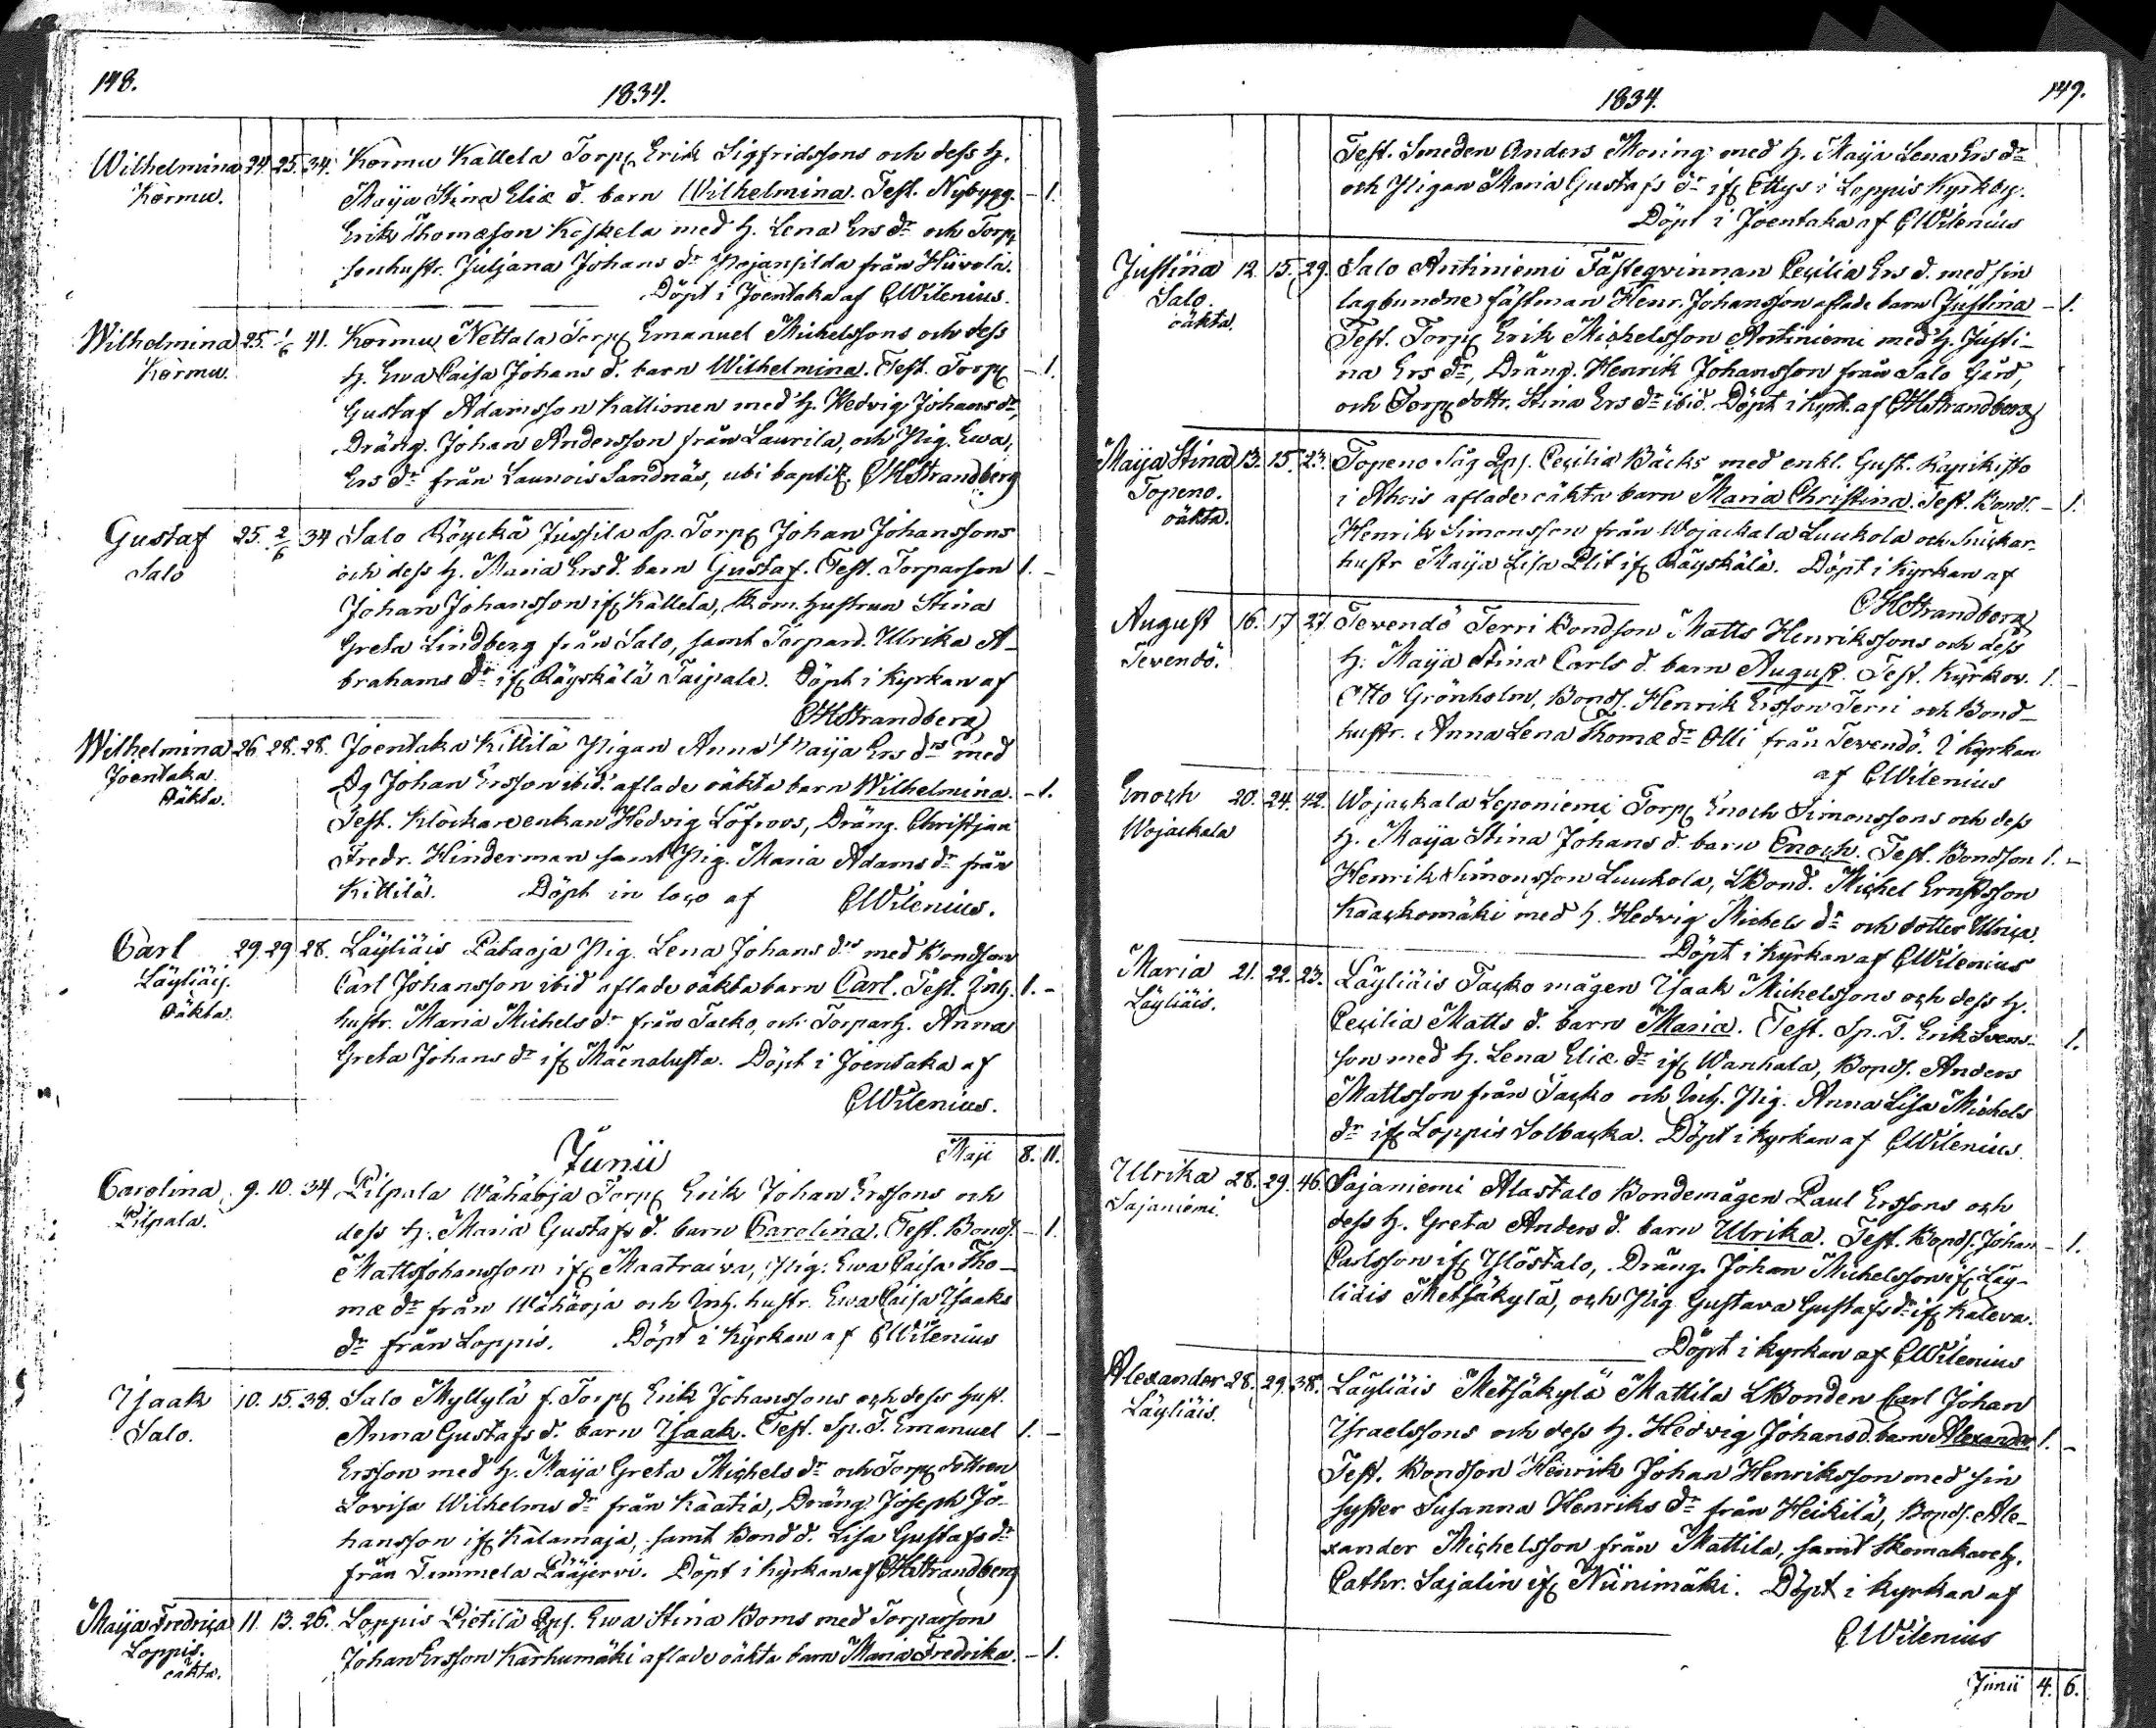 148.
1834.
Wilhelmina 24. 25. 34. Kormu Kallela Torp Erik Sigfridssons och dess h.
Kormu. Maija Stina Eliæ d. barn Wilhelmina. Test. Nybygg. – 1.
Erik Thomasson Koskela med h. Lena Ers dr och Torp
sonhustr. Juljana Johans dr Pojansilda från Hiivola.
Döpt i Joentaka af CWilenius.
Wilhelmina 25. 1/6 41. Kormu Nettala Torp Emanuel Michelssons och dess
Kormu. h. Ewa Caisa Johans d. barn Wilhelmina. Test. Torp – 1.
Gustaf Adamsson Kallionen med h. Hedvig Johans dr,
Dräng. Johan Andersson från Laurila, och Pig. Ewa
Ers dr från Launois Sandnäs, ubi baptiz. CHStrandberg
Gustaf 25. 2/6 34 Salo Röyckä Jussila Sp. Torp Johan Johanssons
Salo och dess h. Maria Ers d. barn Gustaf. Test. Torparson 1. –
Johan Johansson if Kallela, Skom. hustrun Stina
Greta Lindberg från Salo, samt Torpard. Ulrika A-
brahams dr if Räyskälä Taipale. Döpt i Kyrkan af
CHStrandberg
Wilhelmina 26. 28. 28. Joentaka Kittilä Pigan Anna Maija Ers drs med
Joentaka. Dg Johan Ersson ibid. aflade oäkta barn Wilhelmina. – 1.
Oäkta. Test. Klockarenkan Hedvig Löfroos, Dräng. Christjan
Fredr. Hinderman samt Pig. Maria Adams dr från
Kittilä. Döpt in loco af CWilenius.
Carl 29. 29. 28. Läyliäis Pataoja Pig. Lena Johans drs med Bondson
Läyliäis. Carl Johansson ibid aflade oäkta barn Carl. Test. Inh. 1. –
Oäkta. hustr. Maria Michels dr från Jacko, och Torparh. Anna
Greta Johans dr if Maenalusta. Döpt i Joentaka af
CWilenius.
Maji 8. 11.
Junii
Carolina 9. 10. 34 Pilpala Wähäoja Torp Erik Johan Erssons och
Pilpala. dess h. Maria Gustafs d. barn Carolina. Test. Bonds. – 1.
Matts Johansson if Maatraiva, Pig. Ewa Caisa Tho-
mæ dr från Wähäoja och Inh. hustr. Ewa Caisa Isaaks
dr från Loppis. Döpt i Kyrkan af CWilenius
Isaak 10. 15. 38. Salo Myllylä f. Torp Erik Johanssons och dess hust.
Salo. Anna Gustafs d. barn Isaak. Test. Sp. T. Emanuel 1. –
Ersson med h. Maija Greta Michels dr och Torp dottren
Lovisa Wilhelms dr från Kaatia, Dräng. Joseph Jo-
hansson if Kalamaja, samt Bond d. Lisa Gustafs dr
från Tammela Pääjervi. Döpt i Kyrkan af CHStrandberg
Maija Fredrica 11. 13. 26. Loppis Pietilä Qps. Ewa Stina Boms med Torparson
Loppis. Johan Ersson Karhumäki aflade oäkta barn Maria Fredrika. – 1.
oäkta.
1834.
149.
Test. Smeden Anders Moring med h. Maija Lena Ers dr
och Pigan Maria Gustafs dr if Ettys i Loppis Kyrkby.
Döpt i Joentaka af CWilenius
Justina 12. 15. 29. Salo Antiniemi Fästeqvinnan Cecilia Ers d. med sin
Salo. lagbundne fästman Henr. Johansson aflade barn Justina – 1.
oäkta. Test. Torp Erik Michelsson Antiniemi med h. Justi-
na Ers dr, Dräng. Henrik Johansson från Salo Gård,
och Torp dottr. Stina Ers dr ibid. Döpt i Kyrk. af CHStrandberg
Maija Stina 13. 15. 23. Topeno Såg Qps. Cecilia Bäcks med enkl. Gust. Kapikisto
Topeno. i Ahois aflade oäkta barn Maria Christina. Test. Bonds. – 1.
oäkta. Henrik Simonsson från Wojackala Luukola och Snickar-
hustr Maija Lisa Plit if Räyskälä. Döpt i Kyrkan af
CHStrandberg
August 16. 17. 27. Tevendö Terri Bondson Matts Henrikssons och dess
Tevendö. h. Maija Stina Carls d. barn August. Test. Kyrkov. 1. –
Otto Grönholm, Bonds. Henrik Ersson Terri och Bond-
hustr. Anna Lena Thomæ dr Olli från Tevendö. I Kyrkan
af CWilenius
Enoch 20. 24. 42. Wojackala Leponiemi Torp Enoch Simonssons och dess
Wojackala h. Maija Stina Johans d. barn Enoch. Test. Bondson 1. –
Henrik Simonsson Luukola, LBond. Michel Ernstsson
Kaackomäki med h. Hedvig Michels dr och dotter Ulrica.
Döpt i Kyrkan af CWilenius
Maria 21. 22. 23. Läyliäis Jacko mågen Isaak Michelssons och dess h.
Läyliäis. Cecilia Matts d. barn Maria. Test. Sp. T. Erik Svens- 1.
son med h. Lena Eliæ dr if Wanhala, Bonds. Anders
Mattsson från Jacko och Inh. Pig. Anna Lisa Michels
dr if Loppis Solbacka. Döpt i Kyrkan af CWilenius.
Ulrika 28. 29. 46. Sajaniemi Alastalo Bondemågen Paul Erssons och
Sajaniemi. dess h. Greta Anders d. barn Ulrika. Test. Bonds. Johan – 1.
Carlsson if Ylöstalo, Dräng. Johan Michelsson if Läy-
liäis Metsäkylä, och Pig Gustava Gustafs dr if Kaleva.
Döpt i Kyrkan af CWilenius
Alexander 28. 29. 38. Läyliäis Metsäkylä Mattila LBonden Carl Johan
Läyliäis. Israelssons och dess h. Hedvig Johans d. barn Alexander 1. –
Test. Bondson Henrik Johan Henriksson med sin
syster Susanna Henriks dr från Heikilä, Bonds. Ale-
xander Michelsson från Mattila, samt Skomakareh.
Cathr. Sajalin if Niinimäki. Döpt i Kyrkan af
CWilenius
Junii 4. 6.